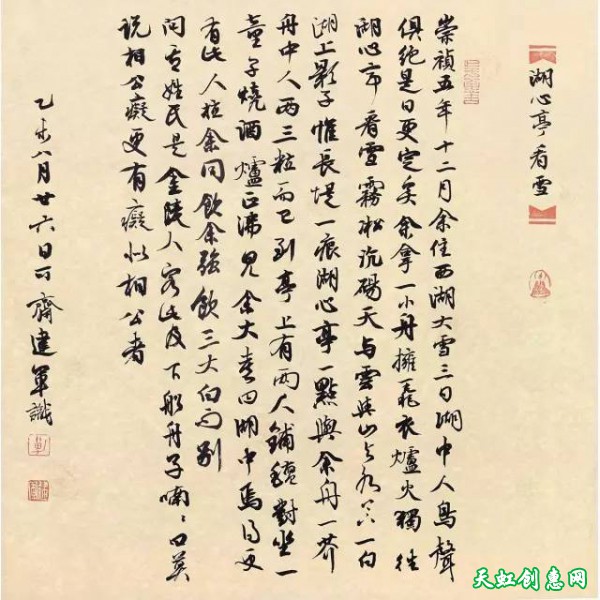 湖心亭看雪
崇禎五年十二月余住西湖大雪三日湖中人鳥聲
俱絶是日更定矣余拿一小舟擁毳衣爐火獨往
湖心亭看雪霧凇沆碭天与雲與山与水一白
湖上影子惟長堤一痕湖心亭一點與余舟一芥
舟中人兩三粒而已到亭上有兩人鋪氈對坐一
童子燒酒爐正沸見余大喜曰湖中焉得更
有此人拉余同飲余強飲三大白而別
問其姓氏是金陵人客此及下船舟子喃々曰莫
説相公癡更有癡似相公者
乙未八月廿六日可齋建軍識
天虹创惠网